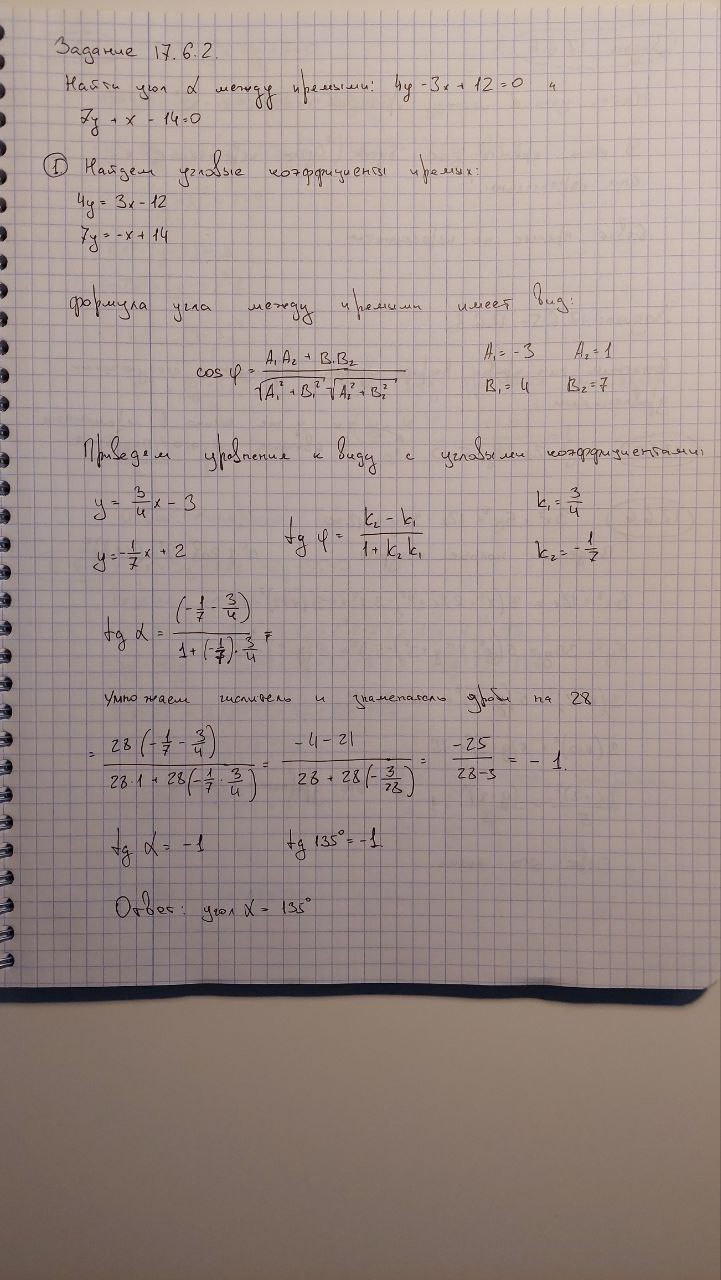 Задание 17.6.2.
Найти угол α между прямыми: 4y - 3x + 12 = 0 и
7y + x - 14 = 0
① Найдем угловые коэффициенты прямых:
4y = 3x - 12
7y = -x + 14
формула угла между прямыми имеет вид:
cos φ = (A₁A₂ + B₁B₂) / (√(A₁² + B₁²) √(A₂² + B₂²)) A₁ = -3 A₂ = 1
B₁ = 4 B₂ = 7
Приведем уравнения к виду с угловыми коэффициентами:
y = 3/4 x - 3 tg φ = (k₂ - k₁) / (1 + k₂k₁) k₁ = 3/4
y = -1/7 x + 2 k₂ = -1/7
tg α = (-1/7 - 3/4) / (1 + (-1/7) · 3/4) =
Умножаем числитель и знаменатель дроби на 28
= 28(-1/7 - 3/4) / (28·1 + 28(-1/7 · 3/4)) = (-4 - 21) / (28 + 28(-3/28)) = -25 / (28-3) = -1.
tg α = -1 tg 135° = -1.
Ответ: угол α = 135°